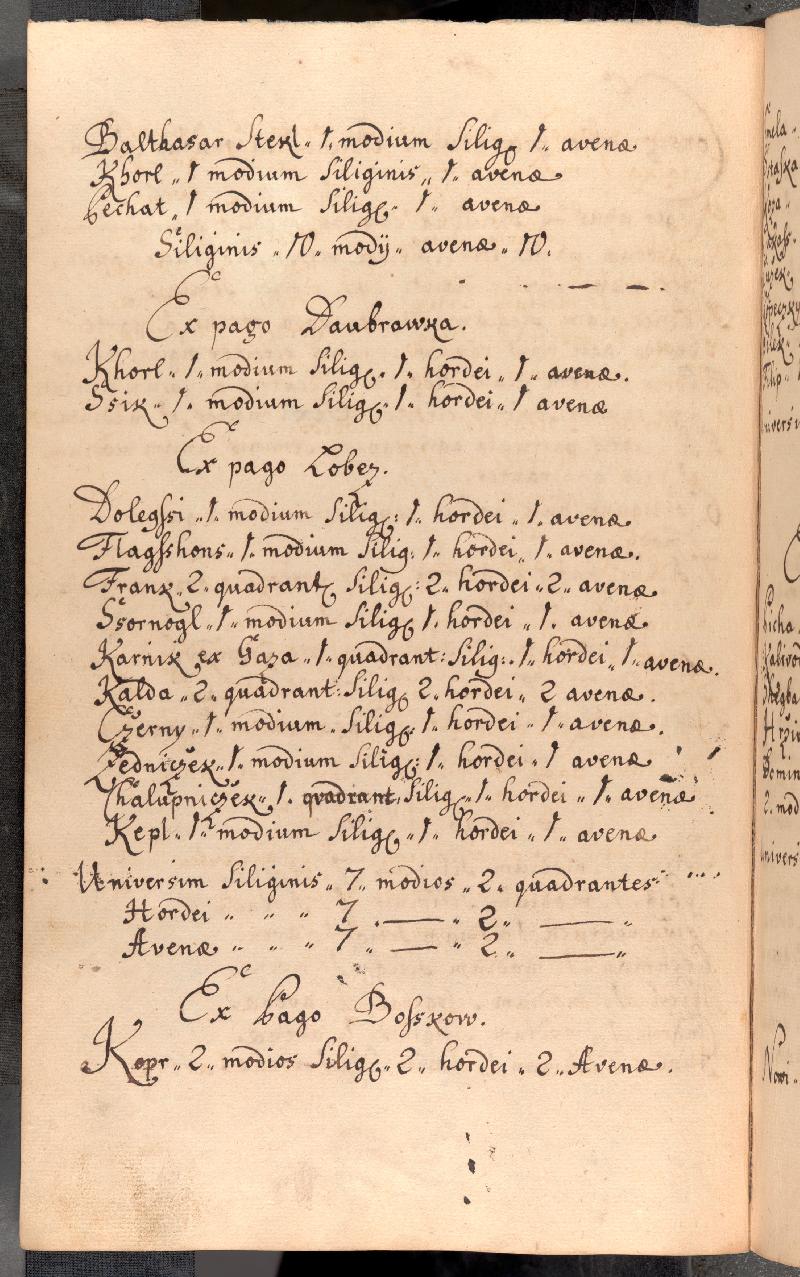 Balthasar Stekl „ 1. modium Silig: 1 „ avenæ
Khorl „ 1 modium Siliginis „ 1 „ avenæ
Pechat „ 1 modium Silig: „ 1 „ avenæ
Siliginis „ 10 „ modÿ „ avenæ „ 10.
Ex pago Daubrawka.
Khorl „ 1 „ modium Silig: „ 1 „ hordei „ 1 „ avenæ.
Ssik „ 1 „ modium Silig: „ 1 „ hordei „ 1 avenæ
Ex pago Lobez.
Dolegssi „ 1 „ modium Silig: 1 „ hordei „ 1. avenæ
Flagsshons „ 1 „ modium Silig: 1 „ hordei „ 1. avenæ.
Frank „ 2 „ quadrant: Silig: 2 „ hordei „ 2 „ avenæ
Ssornogl „ 1 „ modium Silig: 1. hordei „ 1. avenæ
Karnik ex Gaza „ 1 „ quadrant: Silig: „ 1 „ hordei „ 1 „ avenæ.
Kalda „ 2 „ quadrant: Silig: 2 „ hordei „ 2 avenæ.
Czerny „ 1 „ modium „ Silig: 1 „ hordei „ 1 „ avenæ.
Zedniczek „ 1. modium Silig: 1 „ hordei „ 1 avenæ
Chalupniczek „ 1. quadrant. Silig: „ 1 „ hordei „ 1 „ avenæ
Kepl „ 1 „ modium Silig: „ 1 „ hordei „ 1 „ avenæ
Universim Siliginis „ 7 „ modios „ 2 „ quadrantes
Hordei „ „ „ 7 „ — „ 2 „ — „
Avenæ „ „ „ 7 „ — „ 2 „ — „
Ex Pago Bosskow.
Kopr „ 2 „ modios Silig: „ 2 „ hordei „ 2 „ Avenæ.